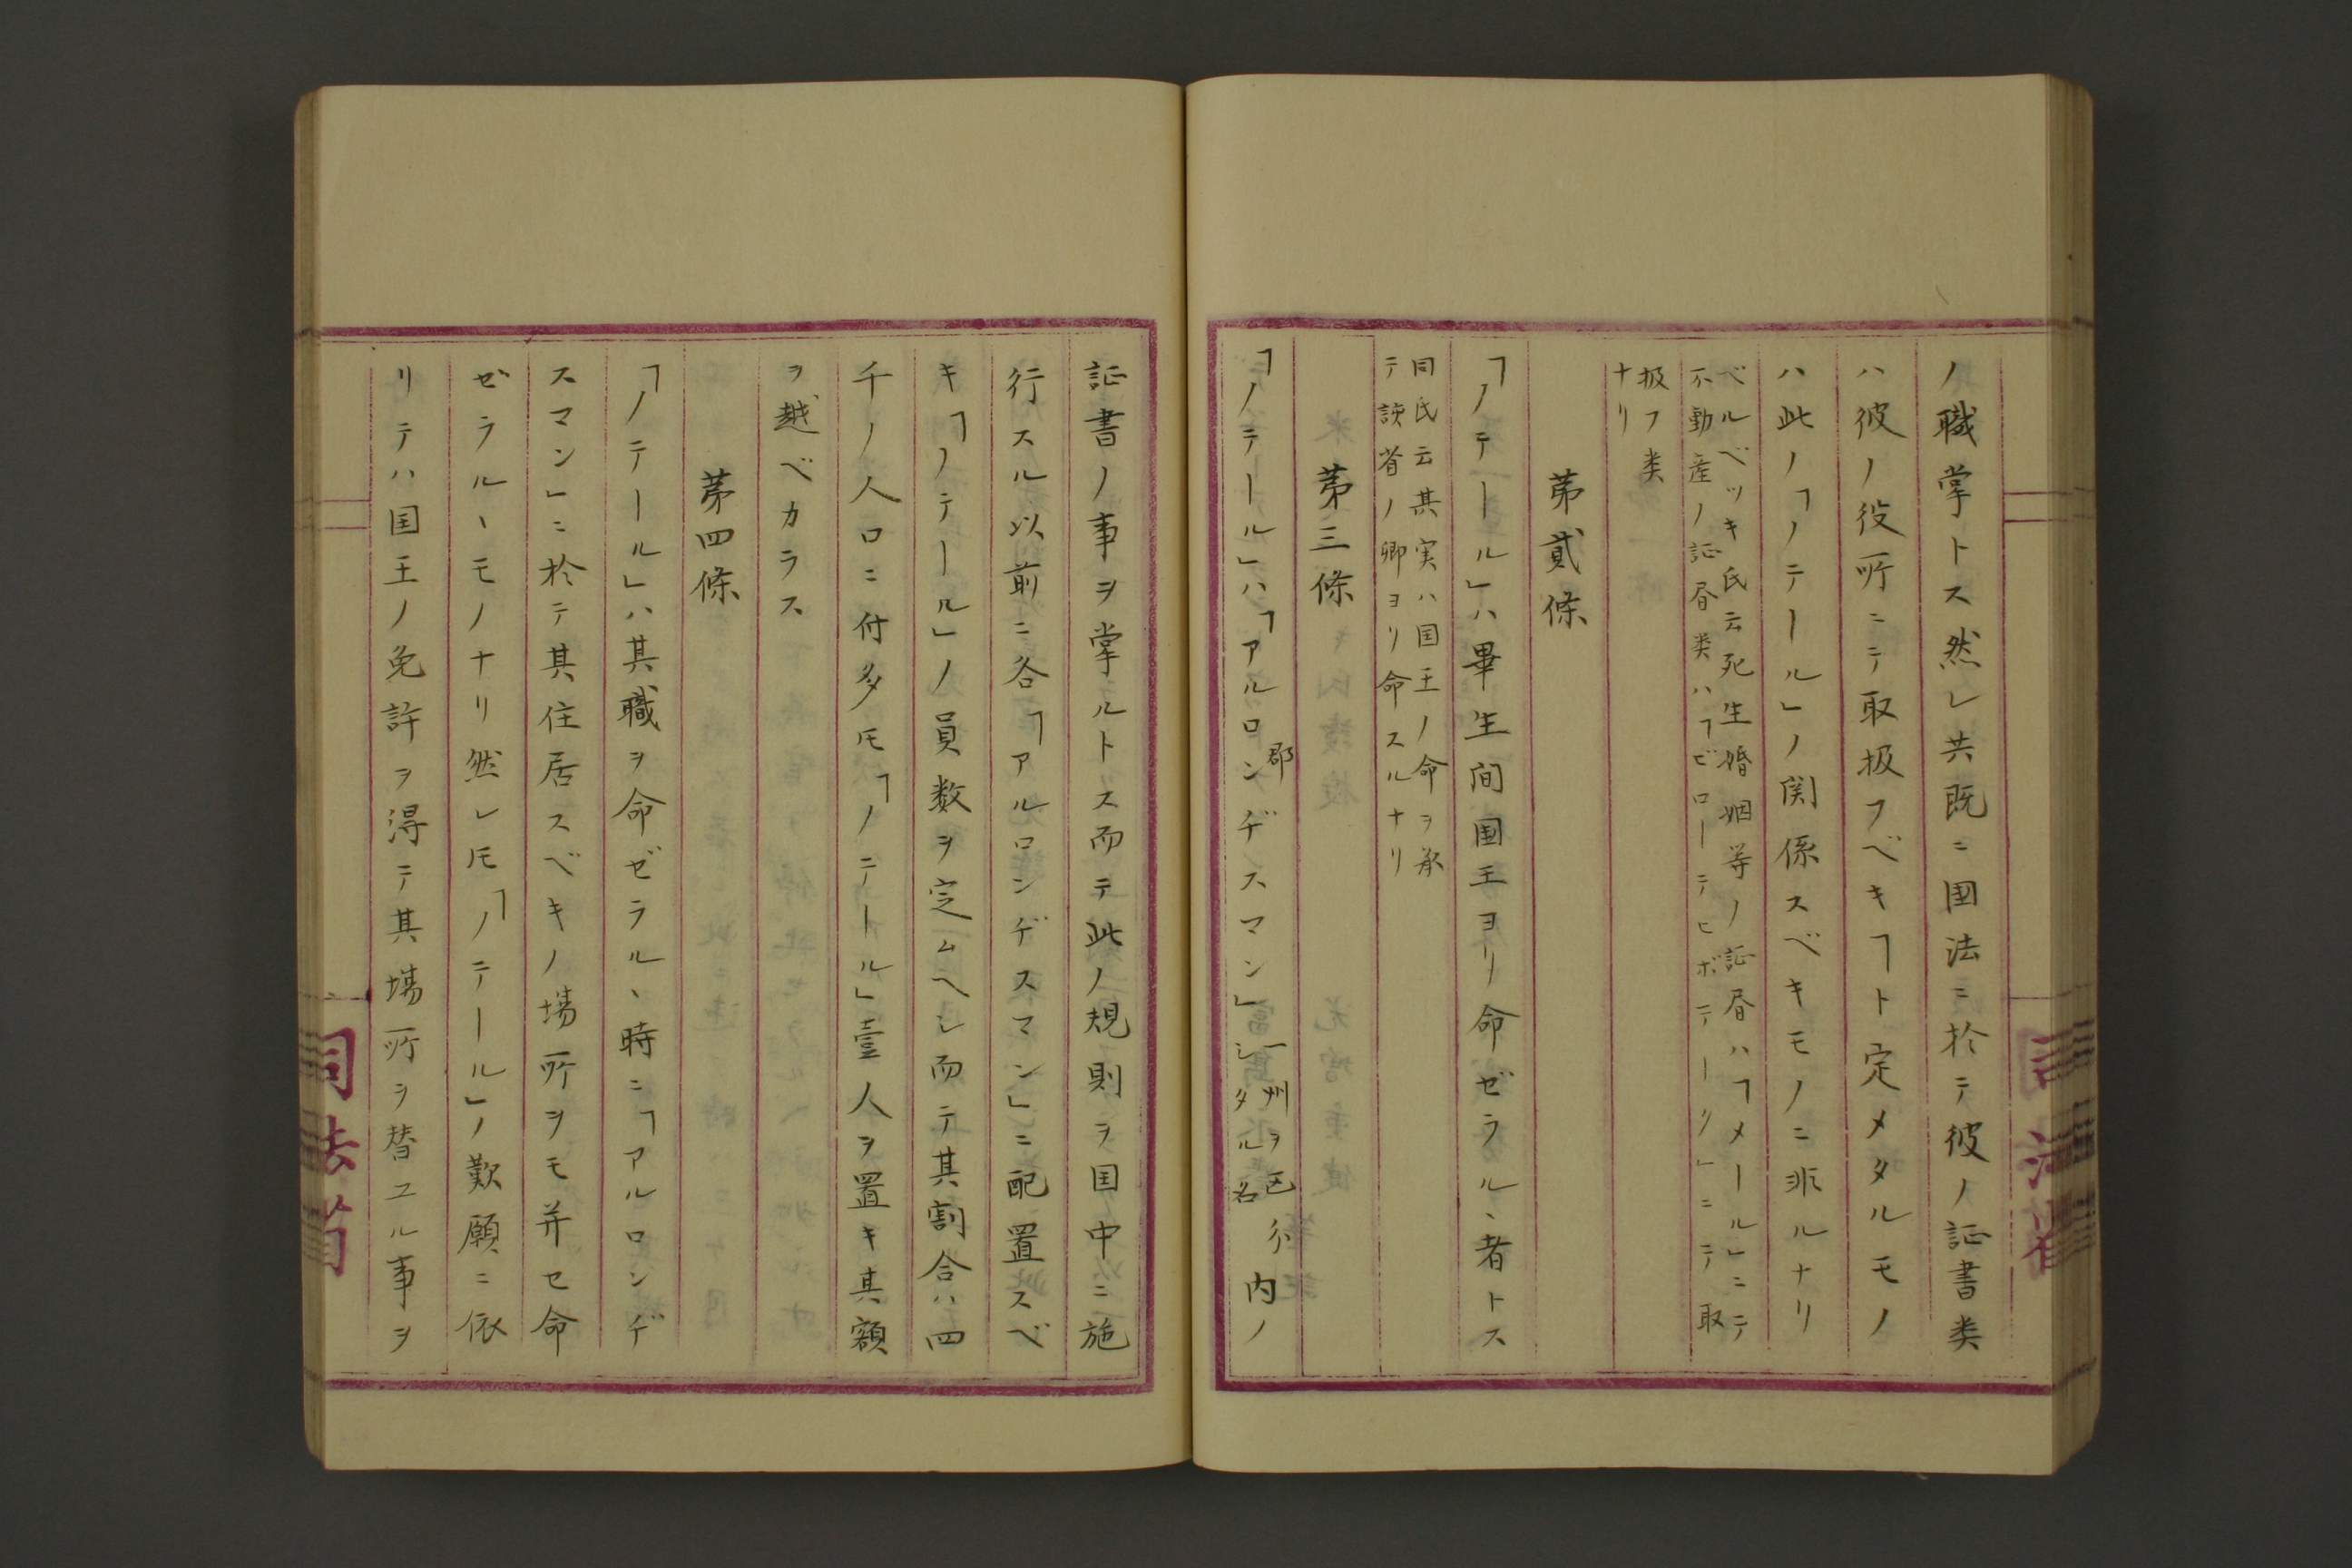 ノ職掌トス然レ共既ニ国法ニ於テ彼ノ証書类
ハ彼ノ役所ニテ取扱フベキヿト定メタルモノ
ハ此ノ「ノテール」ノ関係スベキモノニ非ルナリ
ベルベッキ氏云死生婚姻等ノ証書ハ「メール」ニテ
不動産ノ証書类ハ「ビローテヒポテーク」ニテ取
扱フ类
ナリ
第貳條
「ノテール」ハ畢生間国王ヨリ命ゼラル、者トス
同氏云其実ハ国王ノ命ヲ承
テ該省ノ卿ヨリ命スルナリ
第三條
「ノテール」ハ「アルロンヂスマン」郡 一州ヲ区分シタル名 内ノ
証書ノ事ヲ掌ルトス而テ此ノ規則ヲ国中ニ施
行スル以前ニ各「アルロンヂスマン」ニ配置スベ
キ「ノテール」ノ員数ヲ定ムヘシ而テ其割合ハ四
千ノ人口ニ付多モ「ノテール」壹人ヲ置キ其額
ヲ越ベカラス
第四條
「ノテール」ハ其職ヲ命ゼラル、時ニ「アルロンヂ
スマン」ニ於テ其住居スベキノ場所ヲモ并セ命
ゼラル、モノナリ然レ𪜈「ノテール」ノ歎願ニ依
リテハ国王ノ免許ヲ得テ其場所ヲ替ユル事ヲ
司法省